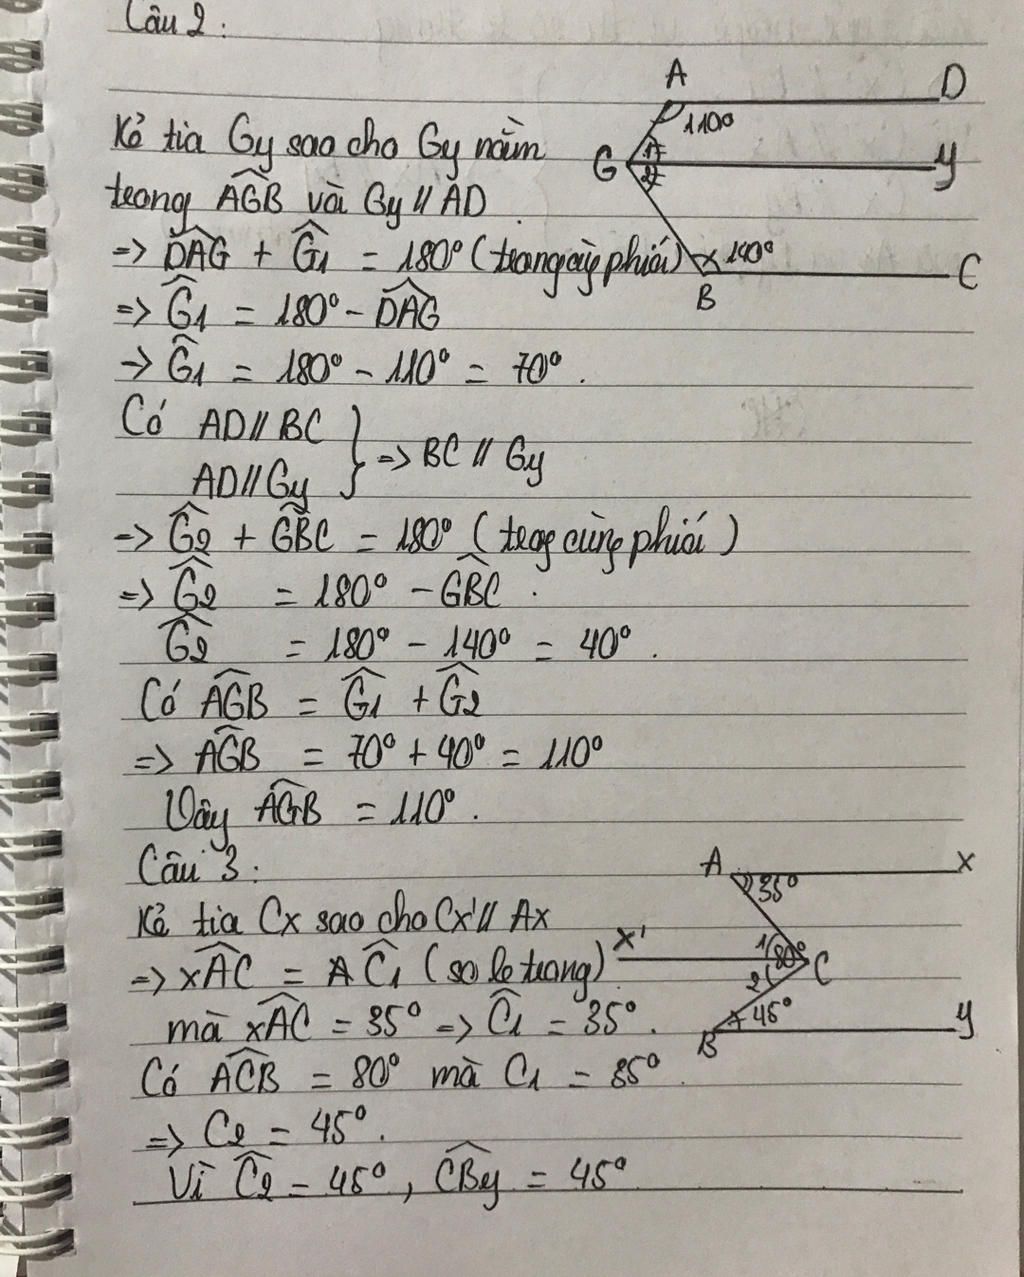 Câu 2:
A D
110°
Kẻ tia Gy sao cho Gy nằm
G 1 y
2
trong AGB và Gy // AD
=> DAG + G1 = 180° (trong cùng phía)
140°
B C
=> G1 = 180° - DAG
=> G1 = 180° - 110° = 70°.
Có AD // BC
AD // Gy } => BC // Gy
=> G2 + GBC = 180° (trog cùng phía)
=> G2 = 180° - GBC.
G2 = 180° - 140° = 40°.
Có AGB = G1 + G2
=> AGB = 70° + 40° = 110°
Vây AGB = 110°.
Câu 3:
A x
35°
Kẻ tia Cx sao cho Cx' // Ax
x' 1 80° C
2
=> xAC = AC1 (so le trong)
mà xAC = 35° => C1 = 35°.
45°
B y
Có ACB = 80° mà C1 = 35°.
=> C2 = 45°.
Vì C2 = 45°, CBy = 45°